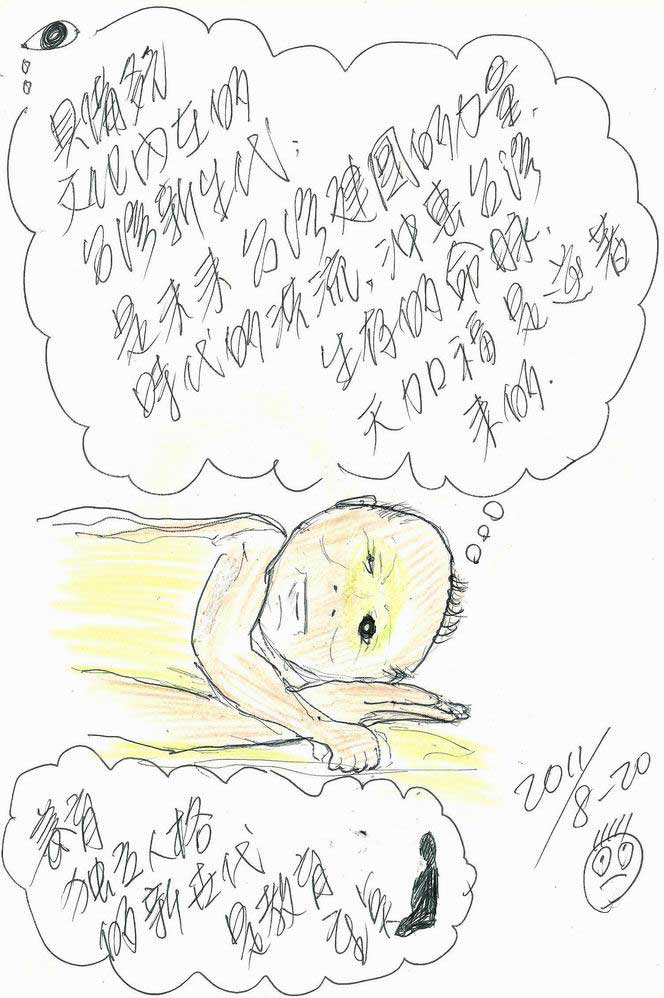 具備多
元化內在的
台灣新生代.
是未來台灣建國的力量.
時代的激流.沖擊台灣
生存的命脈.
天加福是逆著
來的.
2011/8-20
養育
獨立人格
的新世代
是教育